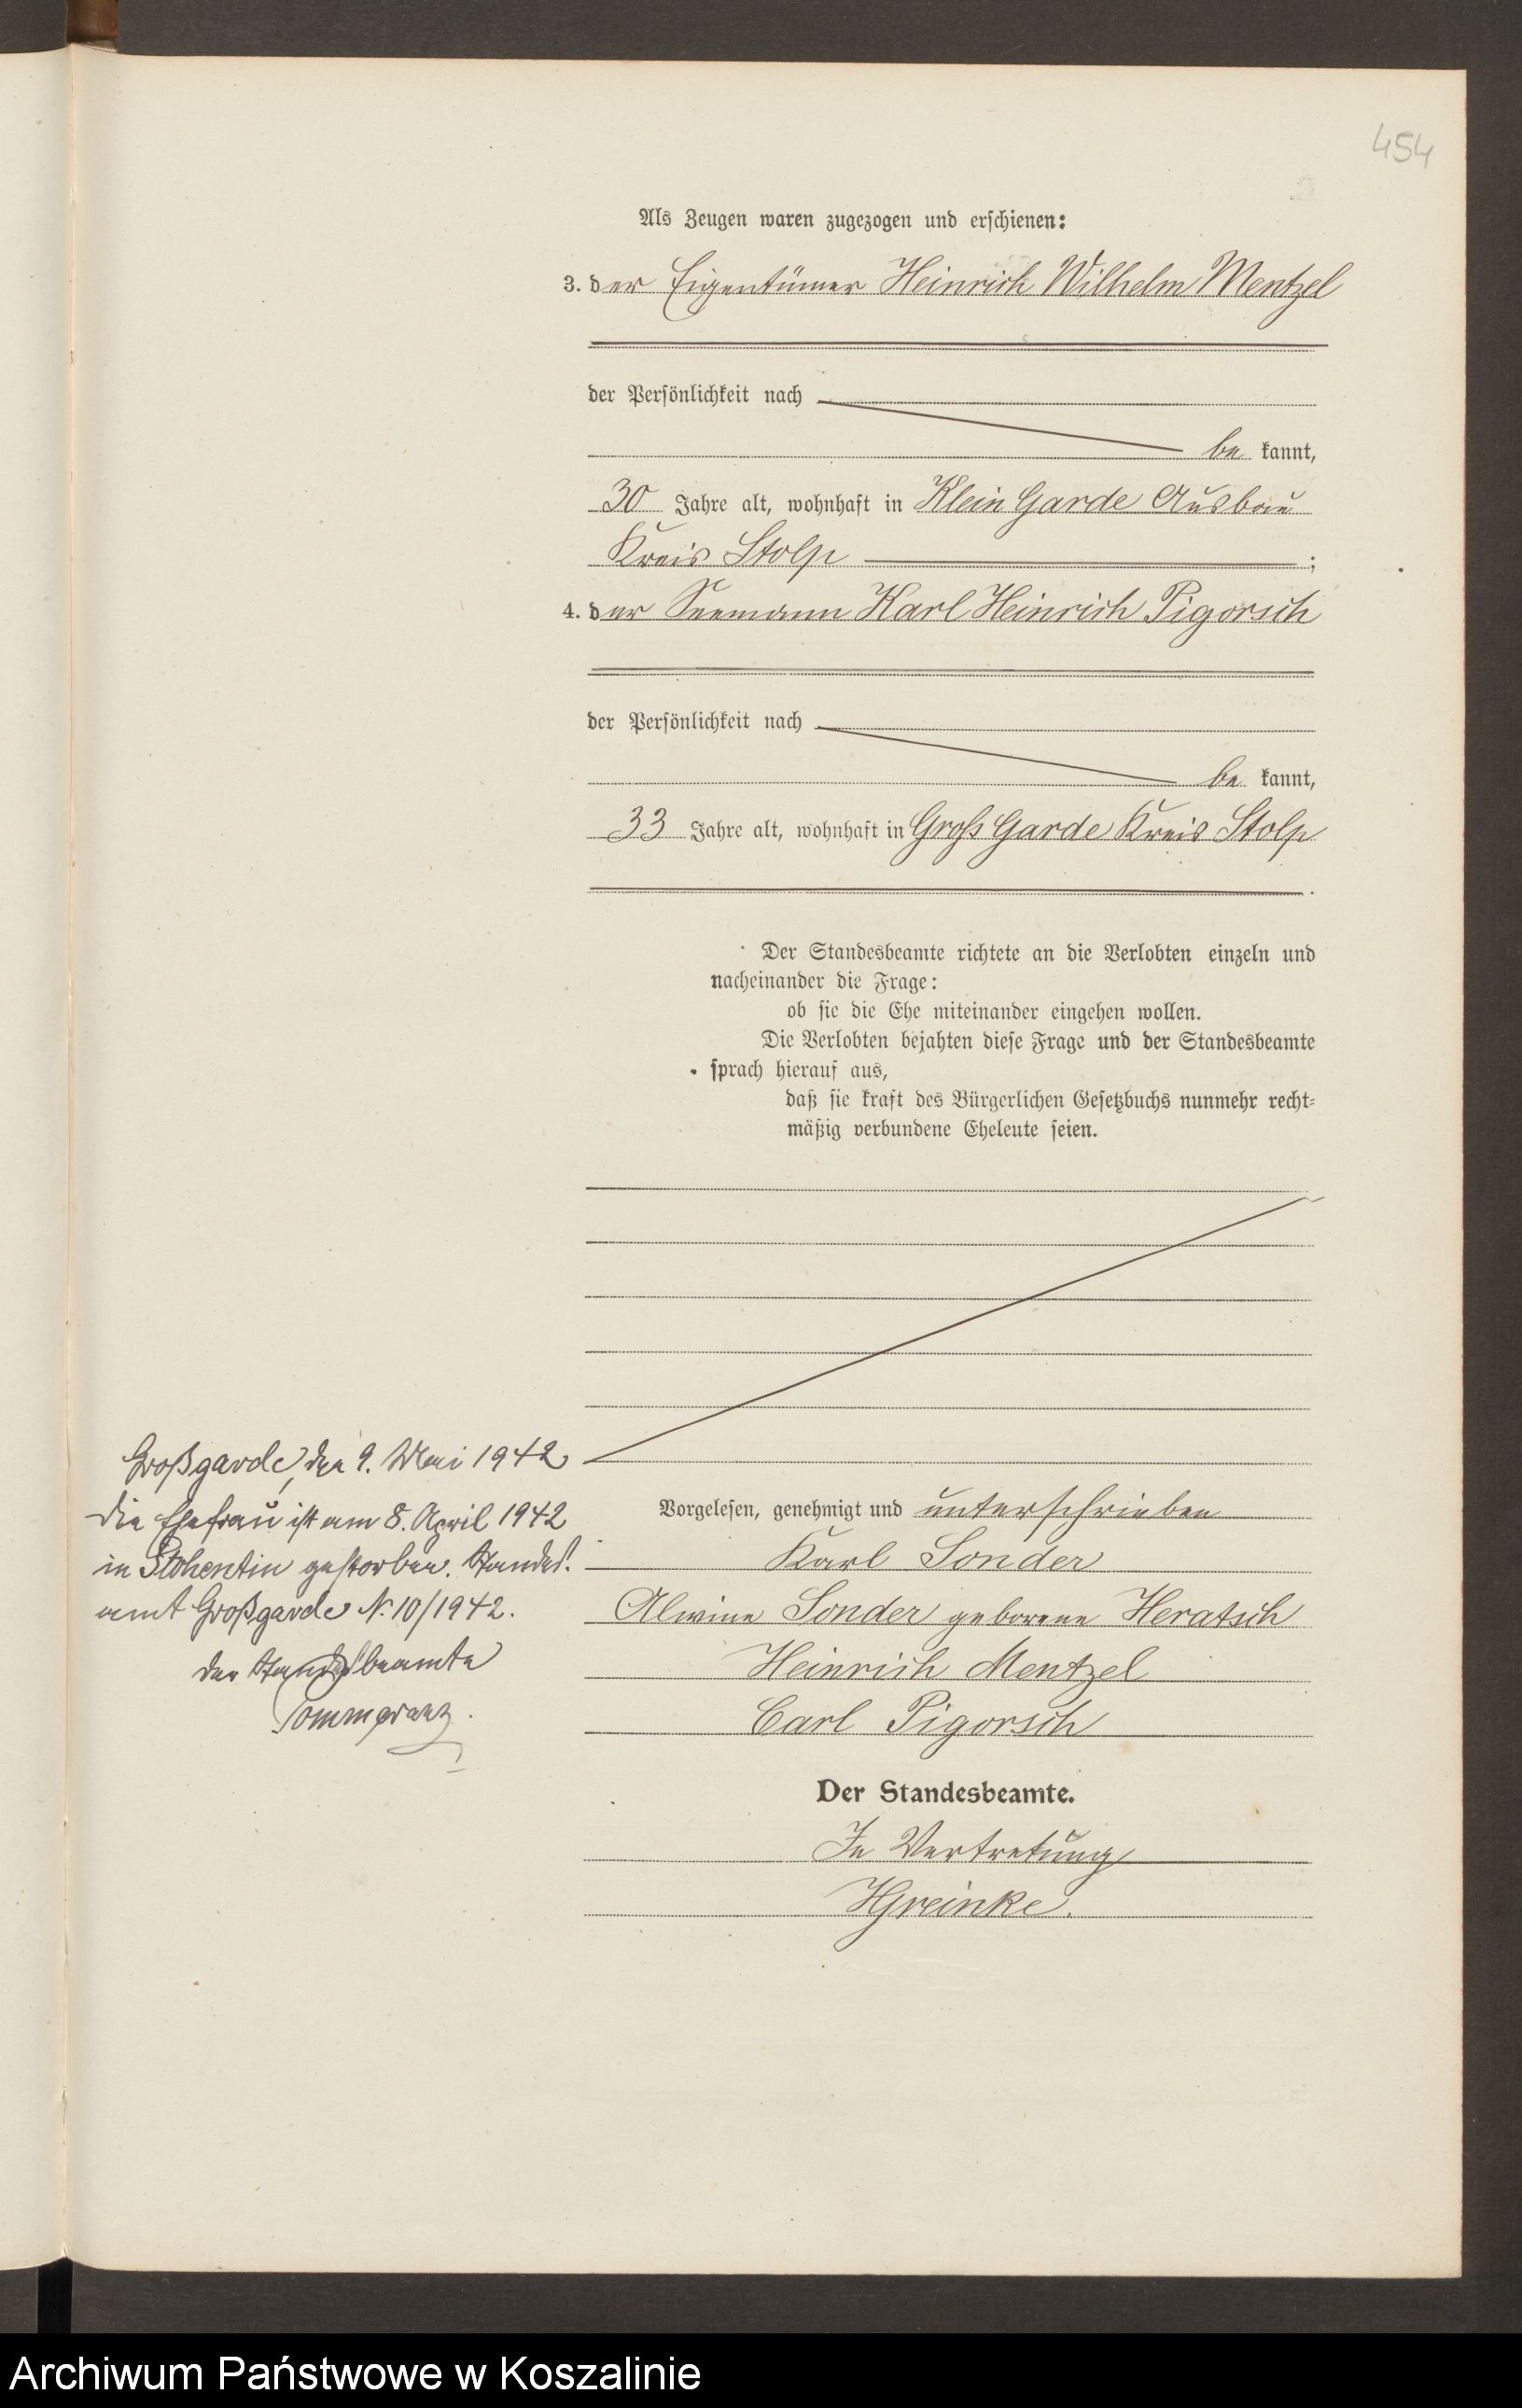 454
Als Zeugen waren zugezogen und erschienen:
3. der Eigentümer Heinrich Wilhelm Mentzel
der Persönlichkeit nach
be kannt,
30 Jahre alt, wohnhaft in Klein Garde Ausbau
Kreis Stolp ;
4. der Seemann Karl Heinrich Pigorsch
der Persönlichkeit nach
be kannt,
33 Jahre alt, wohnhaft in Groß Garde Kreis Stolp
.
Der Standesbeamte richtete an die Verlobten einzeln und
nacheinander die Frage:
ob sie die Ehe miteinander eingehen wollen.
Die Verlobten bejahten diese Frage und der Standesbeamte
sprach hierauf aus,
daß sie kraft des Bürgerlichen Gesetzbuchs nunmehr recht-
mäßig verbundene Eheleute seien.
Vorgelesen, genehmigt und unterschrieben
Karl Sonder
Alwine Sonder geborene Heratsch
Heinrich Mentzel
Carl Pigorsch
Der Standesbeamte.
In Vertretung
HGreinke.
Großgarde, den 9. Mai 1942
Die Ehefrau ist am 8. April 1942
in Stohentin gestorben. Standes-
amt Großgarde N. 10/1942.
Der Standesbeamte
Archiwum Państwowe w Koszalinie